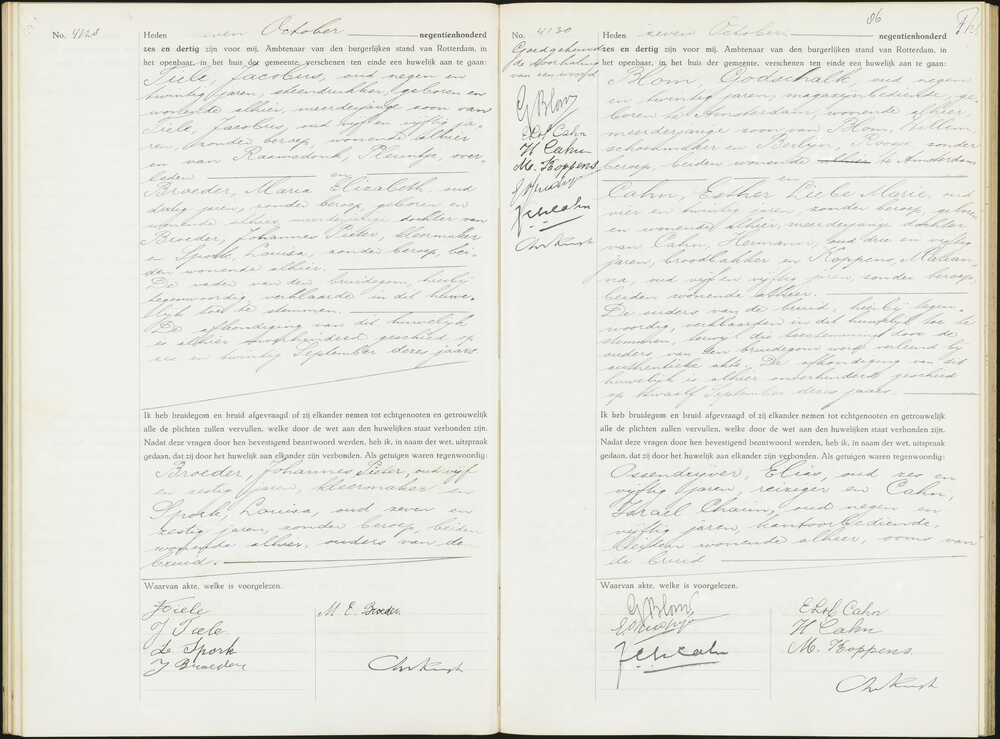 No. 4128
Heden zeven October negentienhonderd
zes en dertig zijn voor mij, Ambtenaar van den burgerlijken stand van Rotterdam, in
het openbaar, in het huis der gemeente, verschenen ten einde een huwelijk aan te gaan:
Tiele, Jacobus, oud negen en
twintig jaren, steendrukker, geboren en
wonende alhier, meerderjarige zoon van
Tiele, Jacobus, oud vijf en vijftig ja-
ren, zonder beroep, wonende alhier
en van Raamsdonk, Pleuntje, over-
leden en
Broeder, Maria Elizabeth, oud
dertig jaren, zonder beroep, geboren en
wonende alhier, meerderjarige dochter van
Broeder, Johannes Pieter, kleermaker
en Spork, Louisa, zonder beroep, bei-
den wonende alhier.
De vader van den bruidegom, hierbij
tegenwoordig, verklaarde in dit huwe-
lijk toe te stemmen.
De afkondiging van dit huwelijk
is alhier onverhinderd geschied op
zes en twintig September dezes jaars.
Ik heb bruidegom en bruid afgevraagd of zij elkander nemen tot echtgenooten en getrouwelijk
alle de plichten zullen vervullen, welke door de wet aan den huwelijken staat verbonden zijn.
Nadat deze vragen door hen bevestigend beantwoord werden, heb ik, in naam der wet, uitspraak
gedaan, dat zij door het huwelijk aan elkander zijn verbonden. Als getuigen waren tegenwoordig:
Broeder, Johannes Pieter, oud vijf
en zestig jaren, kleermaker en
Spork, Louisa, oud zeven en
zestig jaren, zonder beroep, beiden
wonende alhier, ouders van de
bruid.
Waarvan akte, welke is voorgelezen.
J Tiele
J Tiele
L. Spork
J Broeder
M. E. Broeder
86
No. 4130
Goedgekeurd
de doorhaling
van een woord
G Blom
EhL Cahn
H Cahn
M. Koppens
Heden zeven October negentienhonderd
zes en dertig zijn voor mij, Ambtenaar van den burgerlijken stand van Rotterdam, in
het openbaar, in het huis der gemeente, verschenen ten einde een huwelijk aan te gaan:
Blom, Godschalk, oud negen
en twintig jaren, magazijnbediende, ge-
boren te Amsterdam, wonende alhier,
meerderjarige zoon van Blom,
schoenmaker en Berlijn, Roosje, zonder
beroep, beiden wonende alhier te Amsterdam
en
Cahn, Esther Liebe Marie, oud
vier en twintig jaren, zonder beroep, geboren
en wonende alhier, meerderjarige dochter
van Cahn, Hermann, oud drie en vijftig
jaren, broodbakker en Koppens, Marian-
na, oud vijf en vijftig jaren, zonder beroep,
beiden wonende alhier.
De ouders van de bruid, hierbij tegen-
woordig, verklaarden in dit huwelijk toe te
stemmen, terwijl die toestemming door de
ouders van den bruidegom werd verleend bij
authentieke akte. De afkondiging van dit
huwelijk is alhier onverhinderd geschied
op twaalf September dezes jaars.
Ik heb bruidegom en bruid afgevraagd of zij elkander nemen tot echtgenooten en getrouwelijk
alle de plichten zullen vervullen, welke door de wet aan den huwelijken staat verbonden zijn.
Nadat deze vragen door hen bevestigend beantwoord werden, heb ik, in naam der wet, uitspraak
gedaan, dat zij door het huwelijk aan elkander zijn verbonden. Als getuigen waren tegenwoordig:
Ossendrijver, Elias, oud zes en
vijftig jaren, reiziger en Cahn,
Israel Chaim, oud negen en
vijftig jaren, kantoorbediende,
beiden wonende alhier, ooms van
de bruid
Waarvan akte, welke is voorgelezen.
G Blom
EhL Cahn
H Cahn
M. Koppens